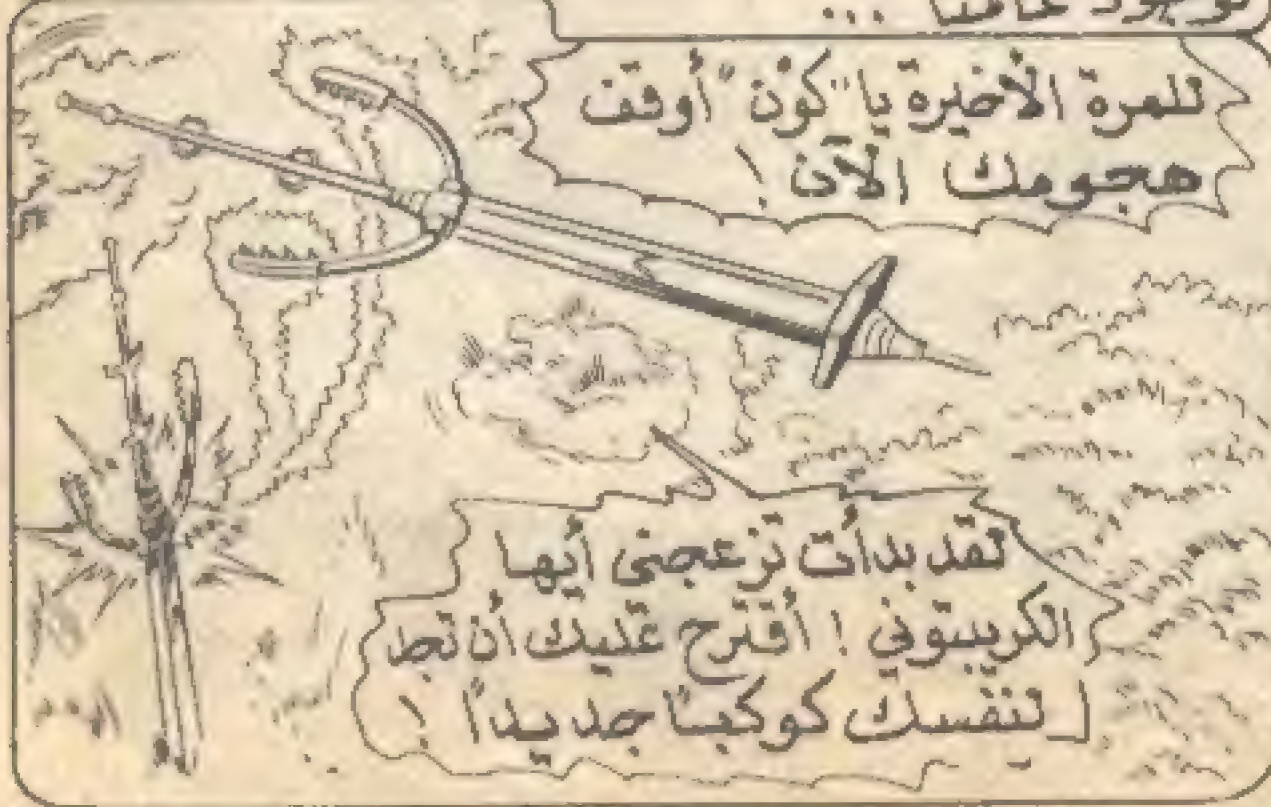 للمرة الأخيرة يا "كون" أوقف
هجومك الآن !
لقد بدأت تزعجني أيها
الكريبتوني ! أقترح عليك أن تجد
لنفسك كوكبًا جديدًا !